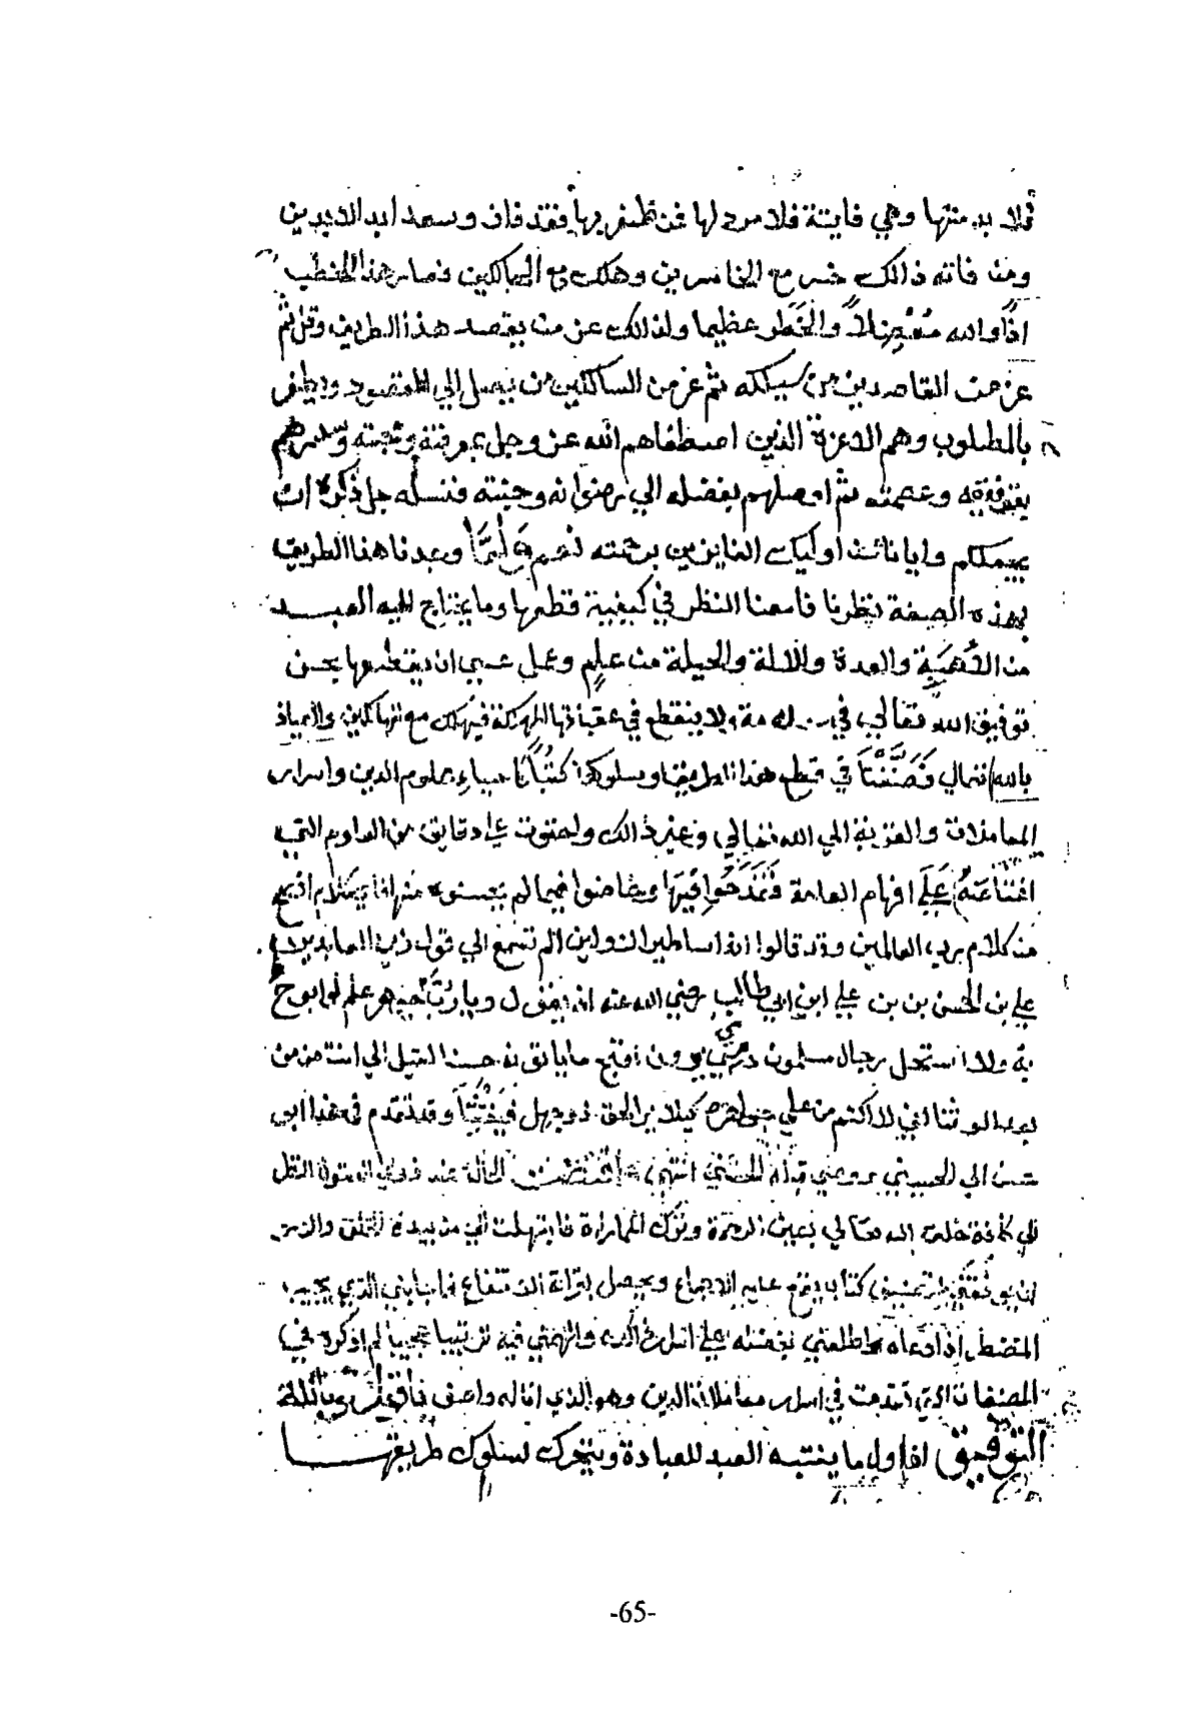 فلا بد منها وهي فايتة فلا مرد لها فمن ظفر بها فقد فاز وسعد ابد الابدين
ومن فاته ذالك خسر مع الخاسرين وهلك مع الهالكين فصار هذا الخطب
اذًا والله مُعْضِلاً والخَطَر عظيما ولذلك عز من يقصد هذا الطريق وقل ثم
عز من القاصدين من يسلكه ثم عز من السالكين من يصل الي المقصود ويظفر
بالمطلوب وهم الاعزة الذين اصطفاهم الله عز وجل بمعرفته ومحبته وسددهم
بتوفيقه وعصمته ثم اوصلهم بفضله الي رضوانه وجنته فنسله جل ذكره ان
يجعلكم وايانا من اوليك الفايزين برحمته نعم ولمَّا وجدنا هذا الطريق
بهذه الصفة نظرنا فامعنا النظر في كيفية قطعها وما يحتاج اليه العبد
من الأهبة والعدة والالة والحيلة من علمٍ وعمل عسي ان يقطعها بحسن
توفيق الله تعالي في سلامة ولا ينقطع في عقباتها المهلكة فيهلك مع الهالكين والعياذ
بالله تعالي فَصَنَّفْنَا في قطع هذا الطريق وسلوكها كتُبًا كاحياء علوم الدين واسرار
المعاملات والقربة الي الله تعالي وغير ذالك واحتوت علي دقايق من العلوم التي
اعْتَاصَتْ عَلَي افهام العامة فَقَدَحُوا فيهَا وخاضوا فيما لم يحسنوه منها فاي كلام افصح
من كلام رب العالمين وقد قالوا انه اساطير الاولين الم تسمع الي قول زين العابدين
علي بن الحسن بن بن علي ابن ابي طالب رضي الله عنه انه يقول ويا رُبَّ جوهر علم لو ابوح
به ولا استحل رجال مسلمون دمي يرون اقبح ما ياتونه حسنا لقيل الي انت ممن
يعبد الوثنا اني لاكتم من علمي جواهره كيلا يري الحق ذو جهل فَيَفْتِنَنَا وقد تقدم في هذا ابو
حسن الي الحسيني ووصي قبله الحسني انتهي اقتضت الحالة عند
الي كافة خلق الله تعالي بعين الرحمة وترك المماراة فابتهلت الي من بيده الخلق والامر
ان يوفقني لتصنيف كتاب يقع عليه الاجماع ويحصل بقراته الانتفاع فاجابني الذي يجيب
المضطر إذا دعاه واطلعني بفضله علي اسرار ذالك والهمني فيه ترتيبا عجيبا لم اذكره في
المصنفات التي تقدمت في اسرار معاملات الدين وهو الذي انا له واصف فاقول وبالله
التوفيق ان اول ما يتنبه العبد للعبادة ويتحرك لسلوك طريقها
-65-